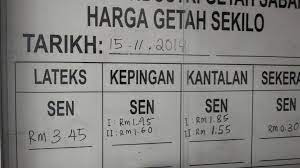 INDUSTRI GETAH
HARGA GETAH SEKILO
TARIKH: 15-11.2014
LATEKS KEPINGAN KANTALAN SEKERA
SEN SEN SEN SEN
Rm 3.45 I : Rm 1.95 I : Rm 1.85 Rm 0.30
II : Rm 1.60 II : Rm 1.55